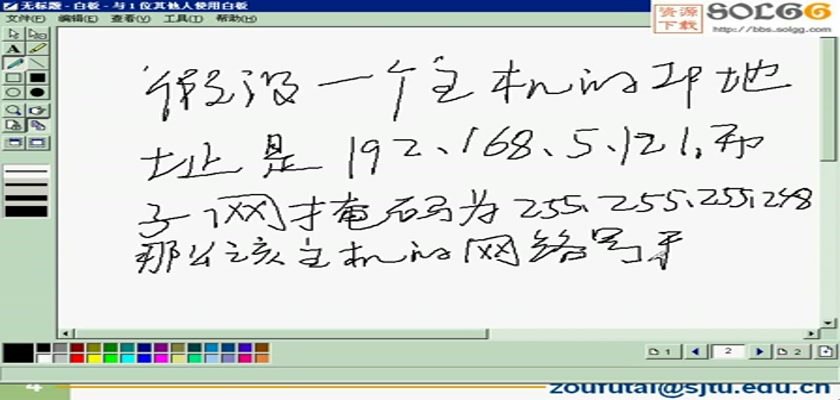 无标题 - 白板 - 与 1 位其他人使用白板
文件(F) 编辑(E) 查看(V) 工具(T) 帮助(H)
资源
下载
SOLGG
http://bbs.solgg.com
A
假设一个主机的IP地
址是192、168、5、121,而
子网掩码为255、255、255、248
那么该主机的网络号
1
2
2
zoufutai@sjtu.edu.cn